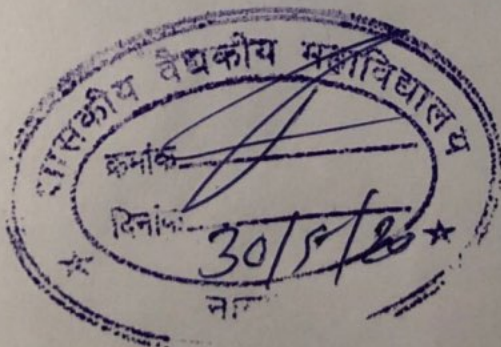 शासकीय वैद्यकीय महाविद्यालय
क्रमांक
दिनांक
30/5/20